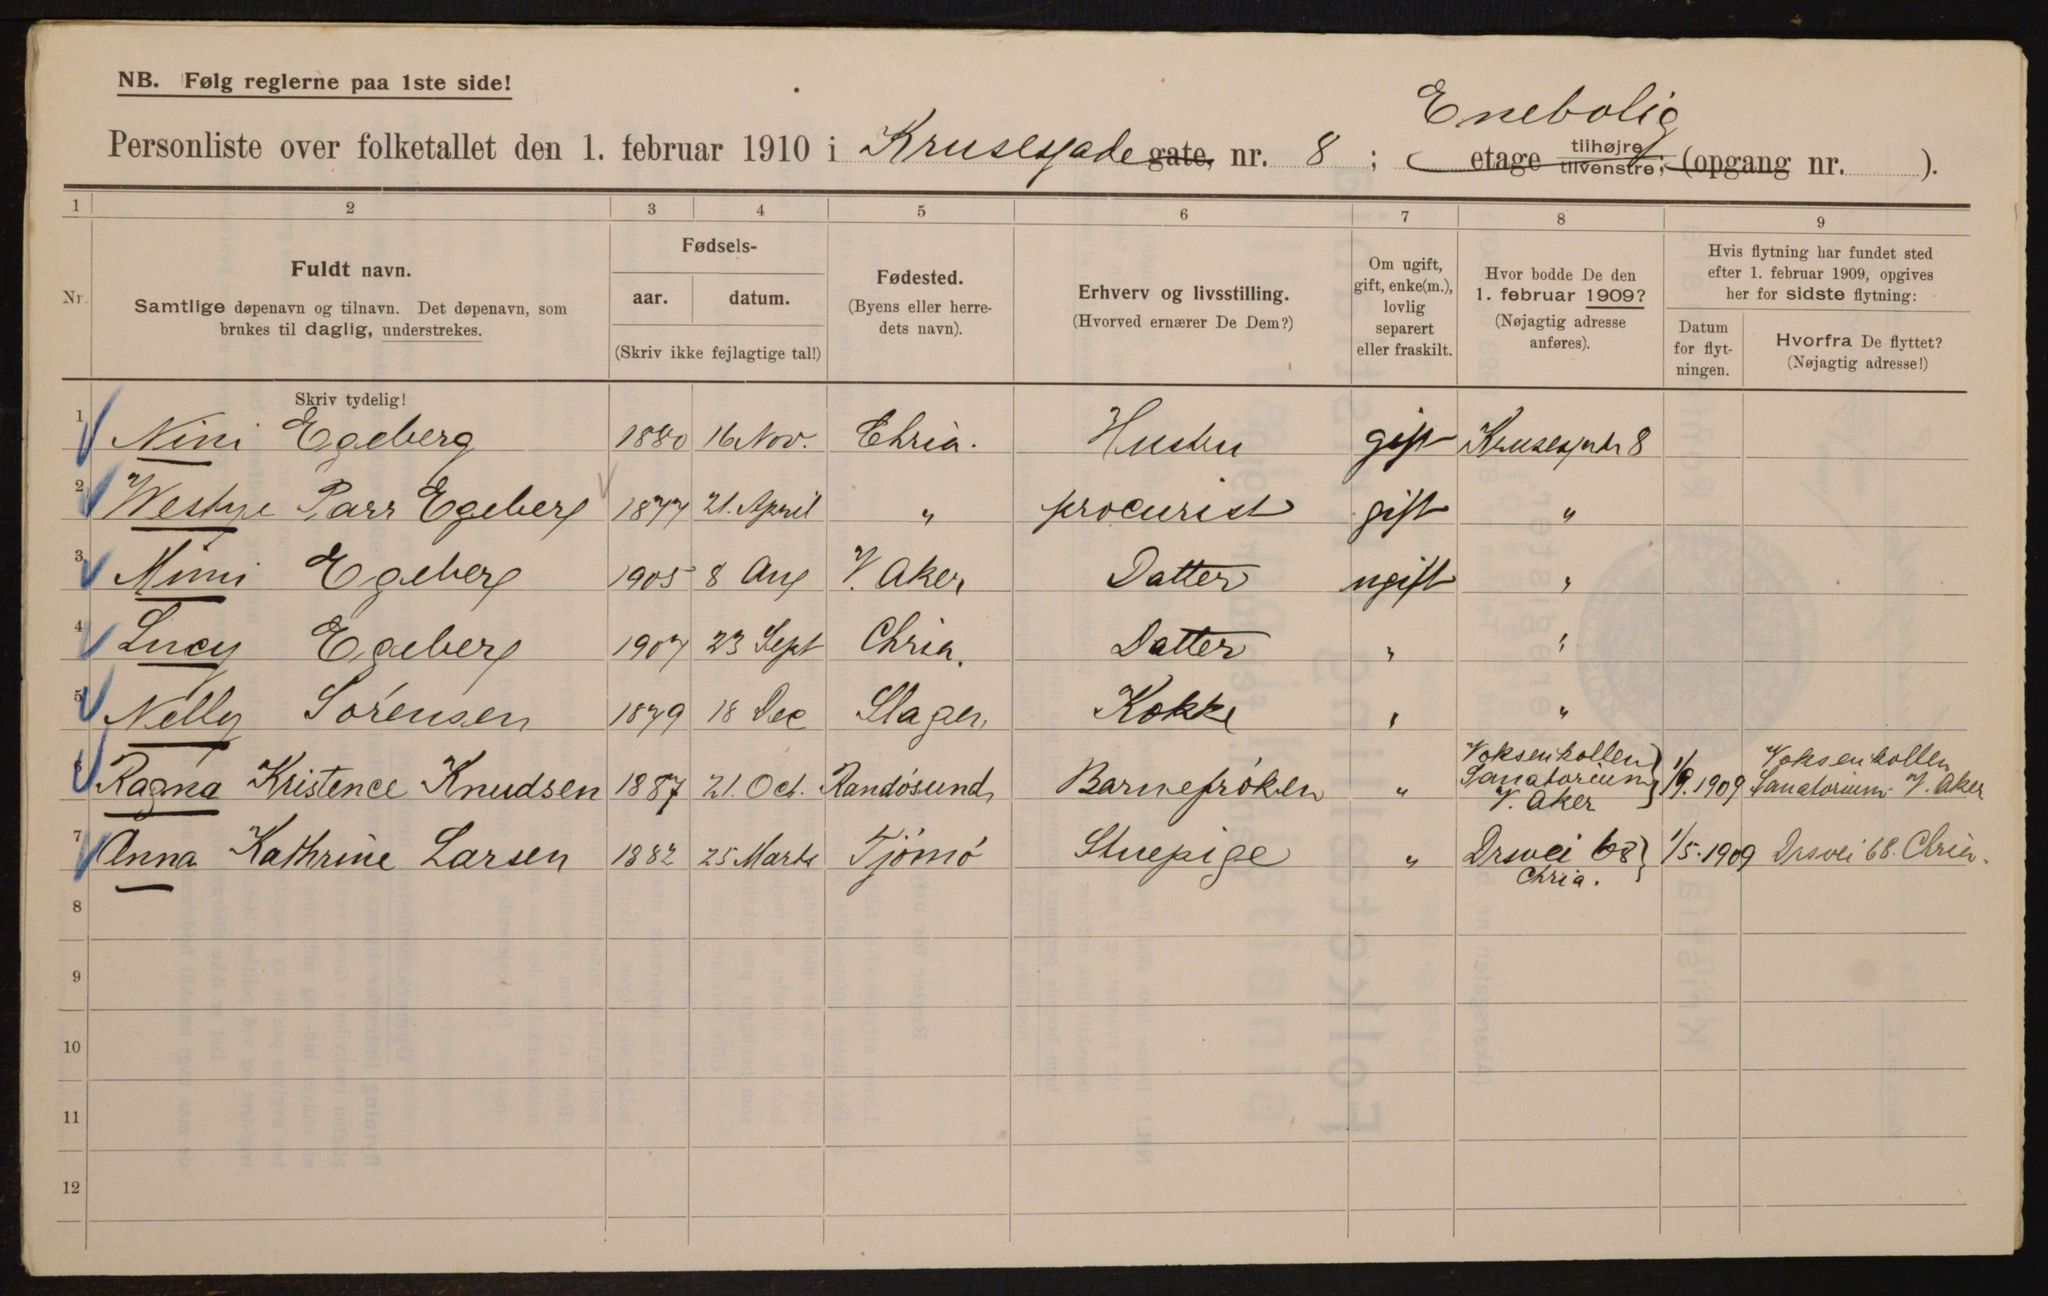 NB. Følg reglerne paa 1ste side!
Enebolig
Personliste over folketallet den 1. februar 1910 i Krusesgade gate, nr. 8 ; etage tilhøjre tilvenstre; (opgang nr. ).
1 2 3 4 5 6 7 8 9
Nr.
Fuldt navn.
Samtlige døpenavn og tilnavn. Det døpenavn, som
brukes til daglig, understrekes.
Fødsels-
aar. datum.
(Skriv ikke fejlagtige tal!)
Fødested.
(Byens eller herre-
dets navn).
Erhverv og livsstilling.
(Hvorved ernærer De Dem?)
Om ugift,
gift, enke(m.),
lovlig
separert
eller fraskilt.
Hvor bodde De den
1. februar 1909?
(Nøjagtig adresse
anføres).
Hvis flytning har fundet sted
efter 1. februar 1909, opgives
her for sidste flytning:
Datum
for flyt-
ningen.
Hvorfra De flyttet?
(Nøjagtig adresse!)
Skriv tydelig!
1 Nini Egeberg 1880 16 Nov. Chria. Hustru gift Krusesgade 8
2 Westye Parr Egeberg 1877 21. April " procurist gift "
3 Mimi Egeberg 1905 8 Aug V. Aker Datter ugift "
4 Lucy Egeberg 1907 23 Sept Chria. Datter " "
5 Nelly Sørensen 1879 18 Dec Slagen Kokke " "
6 Ragna Kristence Knudsen 1887 21. Oct. Randøsund Barnefrøken " Voksenkollen Sanatorium V. Aker 1/9. 1909 Voksenkollen Sanatorium V. Aker
7 Anna Kathrine Larsen 1882 25 Marts Tjømø Stuepige " Drsvei 68 Chria. 1/5. 1909 Drsvei 68. Chria.
8
9
10
11
12